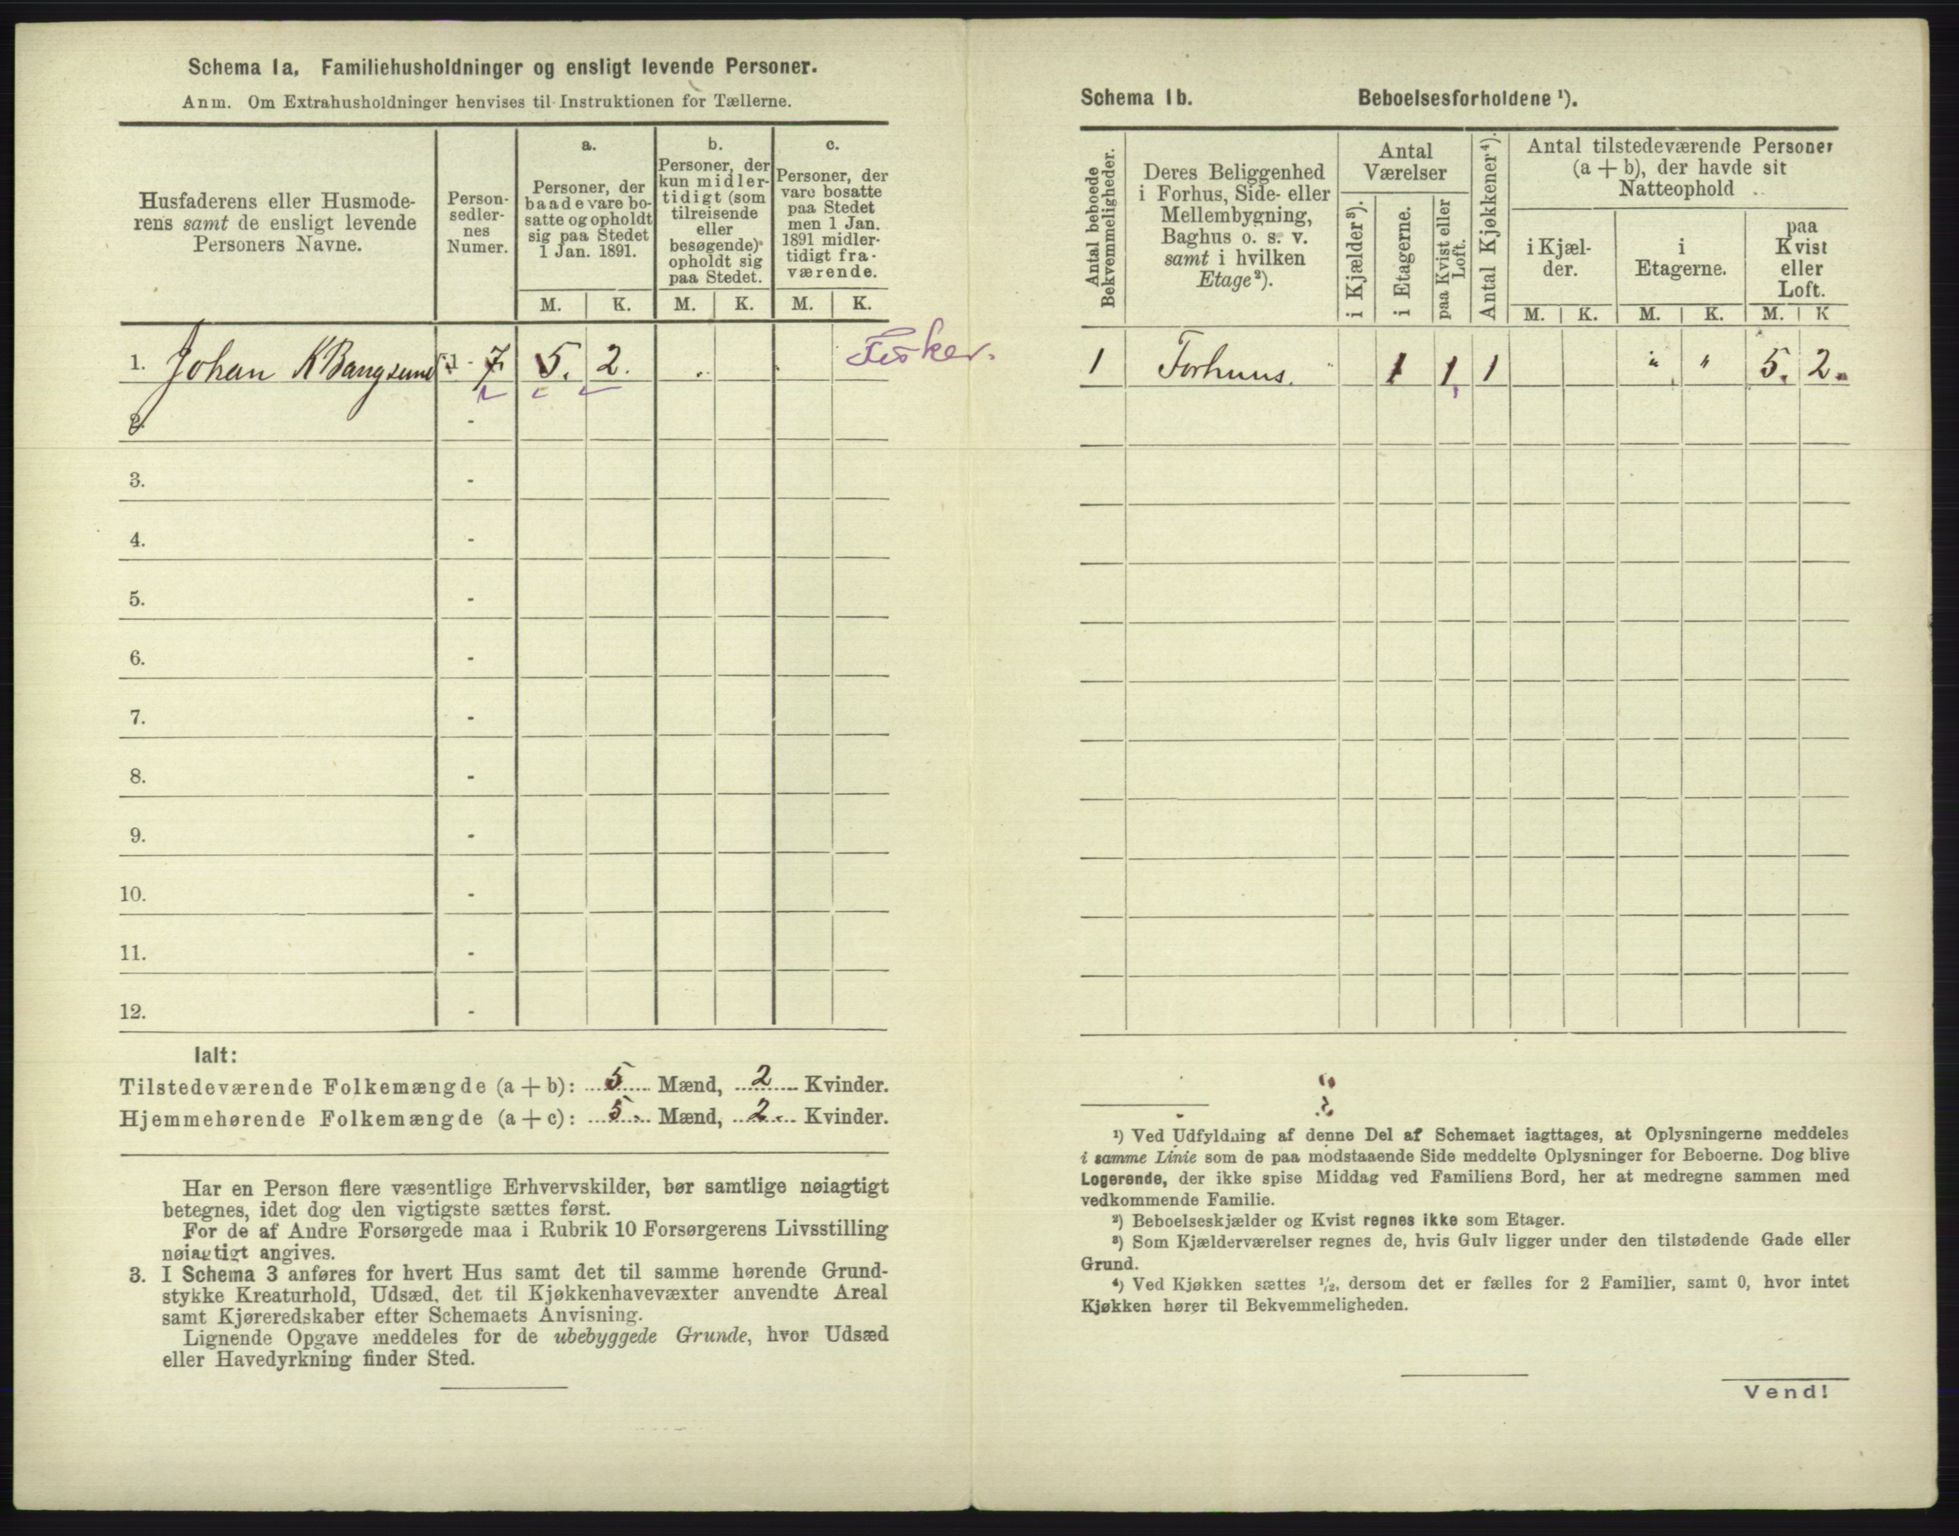 Schema 1a, Familiehusholdninger og ensligt levende Personer.
Anm. Om Extrahusholdninger henvises til Instruktionen for Tællerne.
Husfaderens eller Husmode-
rens samt de ensligt levende
Personers Navne.
Person-
sedler-
nes
Numer.
a.
Personer, der
baade vare bo-
satte og opholdt
sig paa Stedet
1 Jan. 1891.
b.
Personer, der
kun midler-
tidigt (som
tilreisende
eller
besøgende)
opholdt sig
paa Stedet.
c.
Personer, der
vare bosatte
paa Stedet
men 1 Jan.
1891 midler-
tidigt fra-
værende.
M. K. M. K. M. K.
1. Johan K Bangsund 1 - 7. 5. 2. Fisker.
2. -
3. -
4. -
5. -
6. -
7. -
8. -
9. -
10. -
11. -
12. -
Ialt:
Tilstedeværende Folkemængde (a + b): 5 Mænd, 2 Kvinder.
Hjemmehørende Folkemængde (a + c): 5. Mænd, 2. Kvinder.
Har en Person flere væsentlige Erhvervskilder, bør samtlige nøiagtigt
betegnes, idet dog den vigtigste sættes først.
For de af Andre Forsørgede maa i Rubrik 10 Forsørgerens Livsstilling
nøiagtigt angives.
3. I Schema 3 anføres for hvert Hus samt det til samme hørende Grund-
stykke Kreaturhold, Udsæd, det til Kjøkkenhavevæxter anvendte Areal
samt Kjøreredskaber efter Schemaets Anvisning.
Lignende Opgave meddeles for de ubebyggede Grunde, hvor Udsæd
eller Havedyrkning finder Sted.
Schema 1b. Beboelsesforholdene ¹).
Antal beboede
Bekvemmeligheder.
Deres Beliggenhed
i Forhus, Side- eller
Mellembygning,
Baghus o. s. v.
samt i hvilken
Etage²).
Antal
Værelser
i Kjælder³).
i Etagerne.
paa Kvist eller
Loft.
Antal Kjøkkener⁴).
Antal tilstedeværende Personer
(a + b), der havde sit
Natteophold
i Kjæl-
der.
i
Etagerne.
paa
Kvist
eller
Loft.
M. K. M. K. M. K
1 Forhuus. 1 1 1 " " 5. 2.
¹) Ved Udfyldning af denne Del af Schemaet iagttages, at Oplysningerne meddeles
i samme Linie som de paa modstaaende Side meddelte Oplysninger for Beboerne. Dog blive
Logerende, der ikke spise Middag ved Familiens Bord, her at medregne sammen med
vedkommende Familie.
²) Beboelseskjælder og Kvist regnes ikke som Etager.
³) Som Kjælderværelser regnes de, hvis Gulv ligger under den tilstødende Gade eller
Grund.
⁴) Ved Kjøkken sættes ½, dersom det er fælles for 2 Familier, samt 0, hvor intet
Kjøkken hører til Bekvemmeligheden.
Vend!